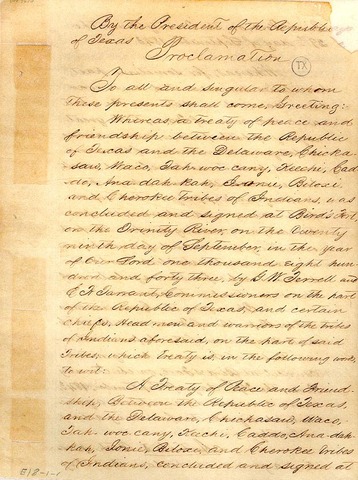 By the President of the Republic
of Texas
Proclamation
TX
To all and singular to whom
these presents shall come, Greeting:
Whereas, a treaty of peace and
friendship between the Republic
of Texas and the Delaware, Chicka-
saw, Waco, Tah-woc-cany, Keechi, Cad-
do, Ana-dah-kah, Ionie, Biloxi
and Cherokee tribes of Indians, was
concluded and signed at Bird's Fort,
on the Trinity River, on the twenty
ninth day of September, in the year
of Our Lord one thousand eight hun-
dred and forty three, by G. W. Terrell and
E H Tarrant, Commissioners on the part
of the Republic of Texas, and certain
chiefs, Head men and warriors of the tribes
of Indians aforesaid, on the part of said
Tribes, which treaty is, in the following words,
to wit:
A Treaty of Peace and Friend-
ship, Between the Republic of Texas,
and the Delaware, Chickasaw, Waco,
Tah-woc-cany, Keechi, Caddo, Ana-dah-
kah, Ionie, Biloxi, and Cherokee tribes
of Indians, concluded and signed at
E18-1-1